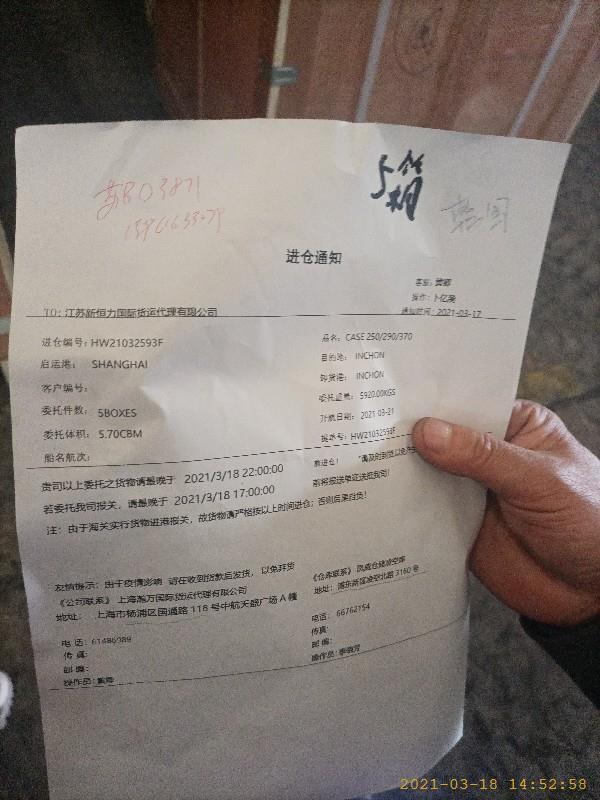 苏B03871
5箱
进仓通知
TO: 江苏新恒力国际货运代理有限公司
通知时间: 2021-03-17
进仓编号: HW21032593F
品名: CASE 250/290/370
启运港: SHANGHAI
目的地: INCHON
客户编号:
卸货港: INCHON
委托件数: 5BOXES
委托重量: 5920.00KGS
委托体积: 5.70CBM
开航日期: 2021-03-21
船名航次:
提单号: HW21032593F
贵司以上委托之货物请最晚于 2021/3/18 22:00:00
前进仓!
若委托我司报关, 请最晚于 2021/3/18 17:00:00
前将报送单证送抵我司!
注: 由于海关实行货物进港报关, 故货物请严格按以上时间进仓; 否则后果自负!
友情提示: 由于疫情影响 请在收到货款后发货, 以免弃货
《公司联系》 上海瀚万国际货运代理有限公司
地址: 上海市杨浦区国通路 118 号中航天盛广场 A 幢
电 话: 61486989
传 真:
邮 编:
操作员:
《仓库联系》 凤威仓储凌空库
地址: 浦东新区凌空北路 3160 号
电话: 66762154
传真:
邮 编:
操作员:
2021-03-18 14:52:58